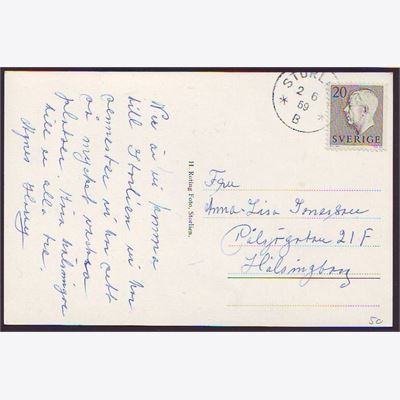 Nu är vi komna
till Storlien vi har
semester vi har ett
och mycket vackra
platser. Kära hälsningar
till er alla tre.
Agnes
H. Reting Foto, Storlien.
STORL
2 6
69
B
20
SVERIGE
Fru
Anna-Lisa Jonasson
Pålsjögatan 21 F
Hälsingborg
50